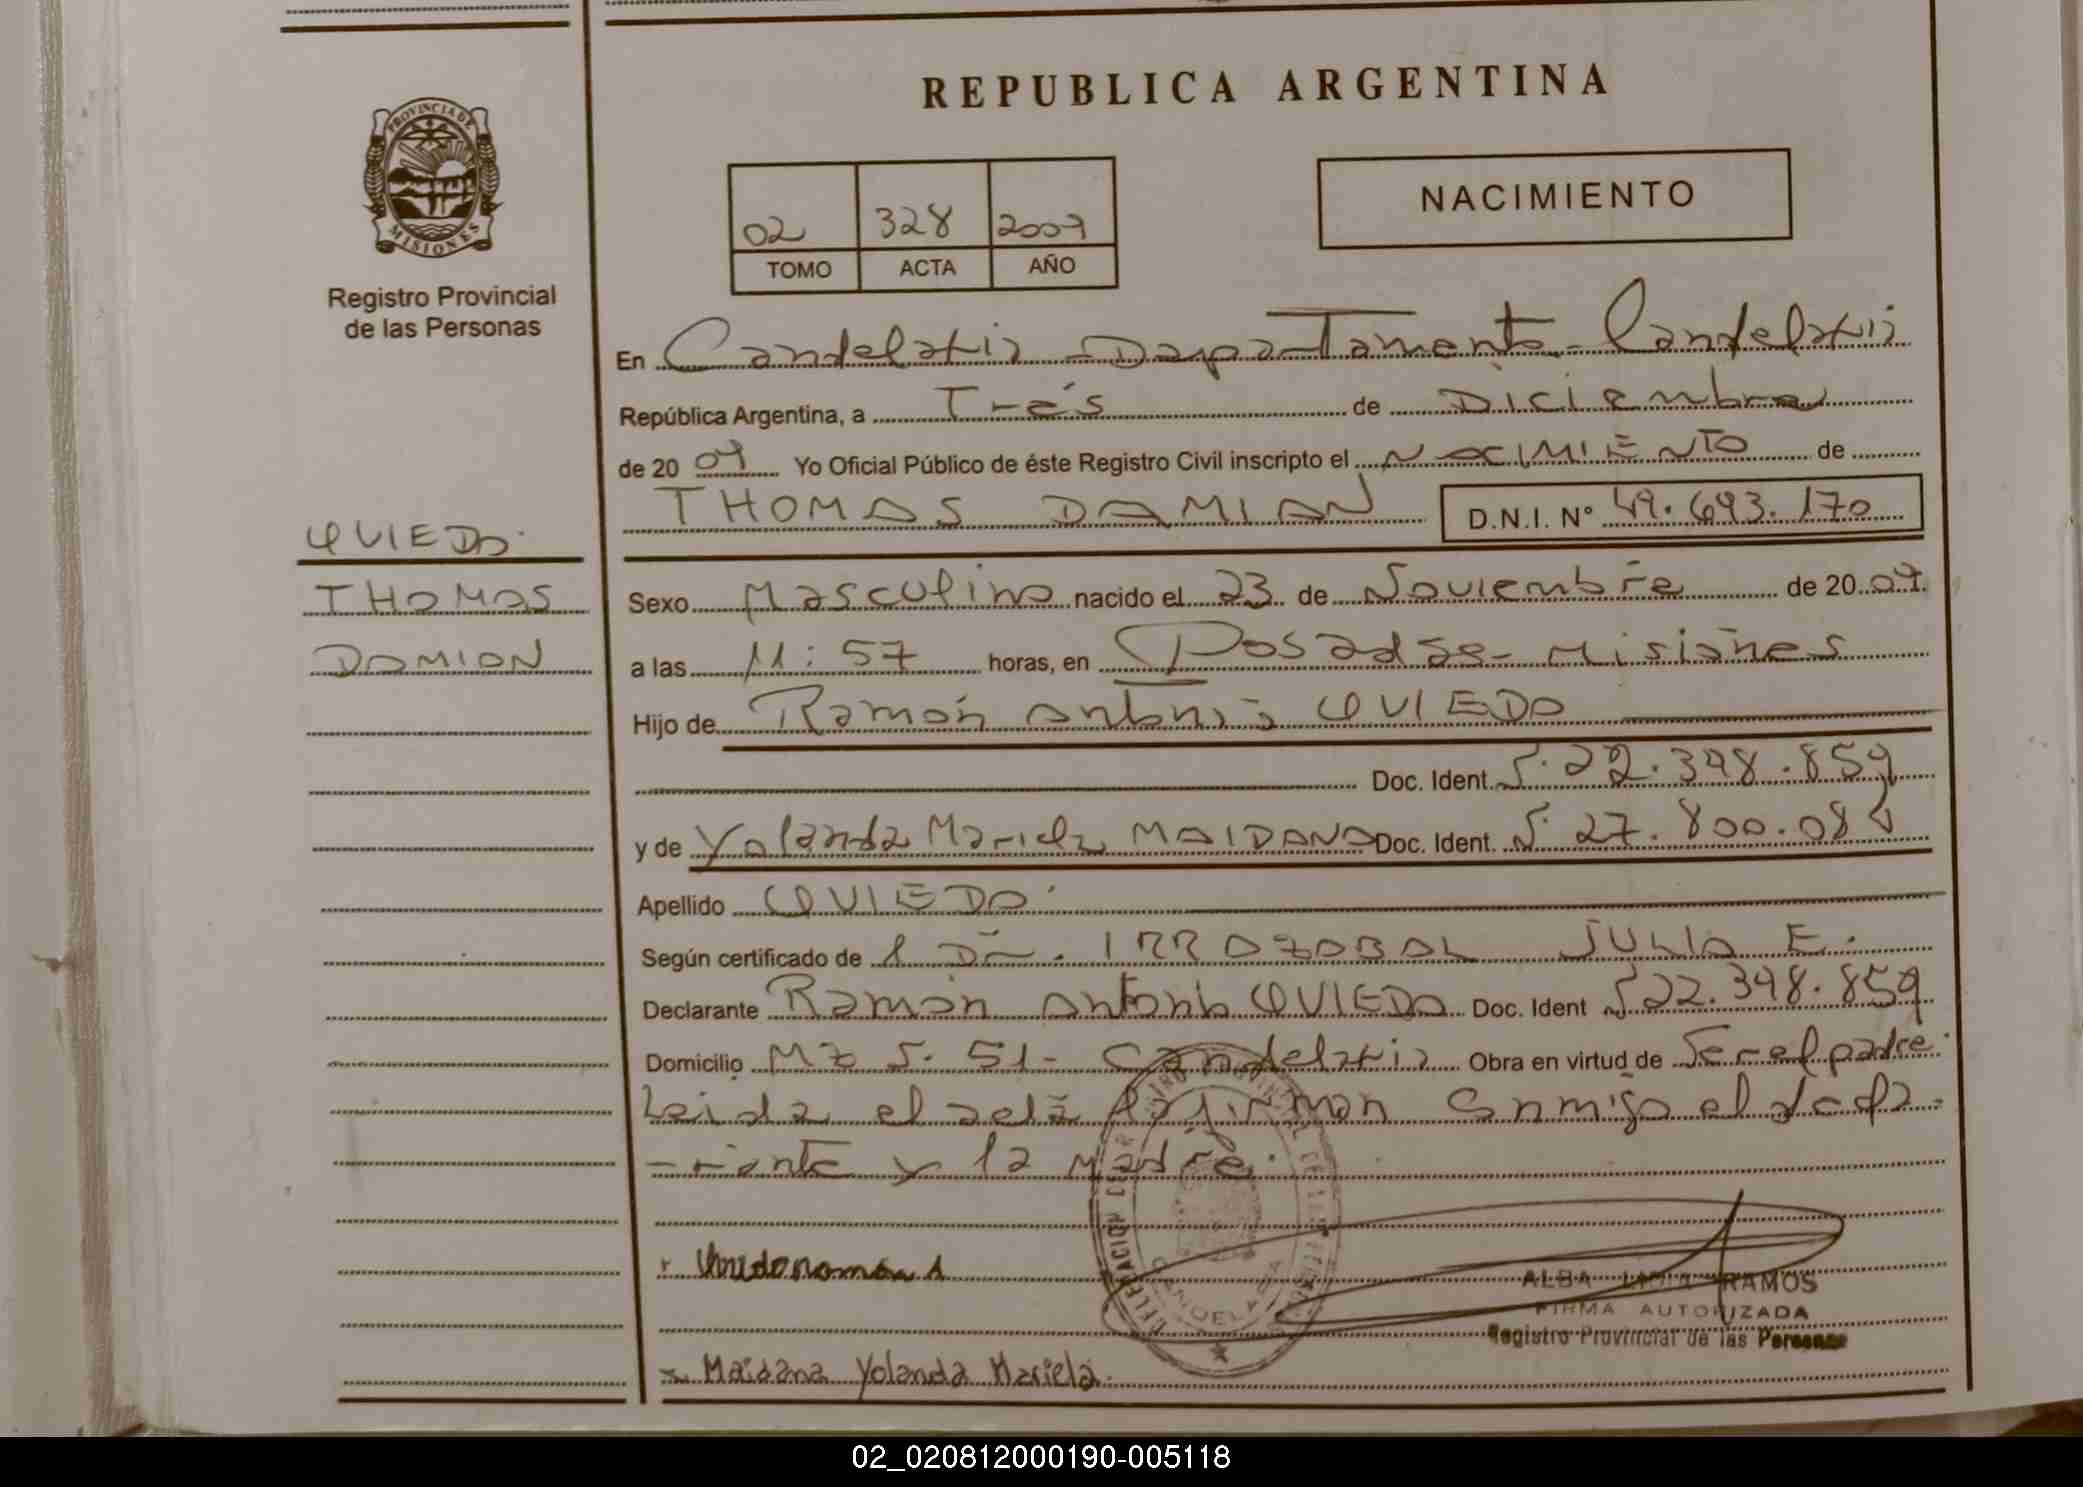 REPUBLICA ARGENTINA
PROVINCIA DE MISIONES
Registro Provincial
de las Personas
02 328 2009
TOMO ACTA AÑO
NACIMIENTO
En Candelaria Departamento Candelaria
República Argentina, a Tres de Diciembre
de 2009 Yo Oficial Público de éste Registro Civil inscripto el NACIMIENTO de
THOMAS DAMIAN D.N.I. Nº 49.693.170
OVIEDO
THOMAS
DAMIAN
Sexo Masculino nacido el 23 de Noviembre de 2009.
a las 11:57 horas, en Posadas - Misiones
Hijo de Ramón Antonio OVIEDO
Doc. Ident. 22.398.859
y de Yolanda Mariela MAIDANA Doc. Ident. 27.800.08
Apellido OVIEDO
Según certificado de IRRAZABAL JULIA E.
Declarante Ramón Antonio OVIEDO Doc. Ident 22.398.859
Domicilio Mz S. 51 - Candelaria Obra en virtud de Ser el padre
Leida el acta la firman conmigo el decla-
-rante y la Madre.
ALBA LIDIA RAMOS
FIRMA AUTORIZADA
Registro Provincial de las Personas
Maidana Yolanda Mariela.
02_020812000190-005118